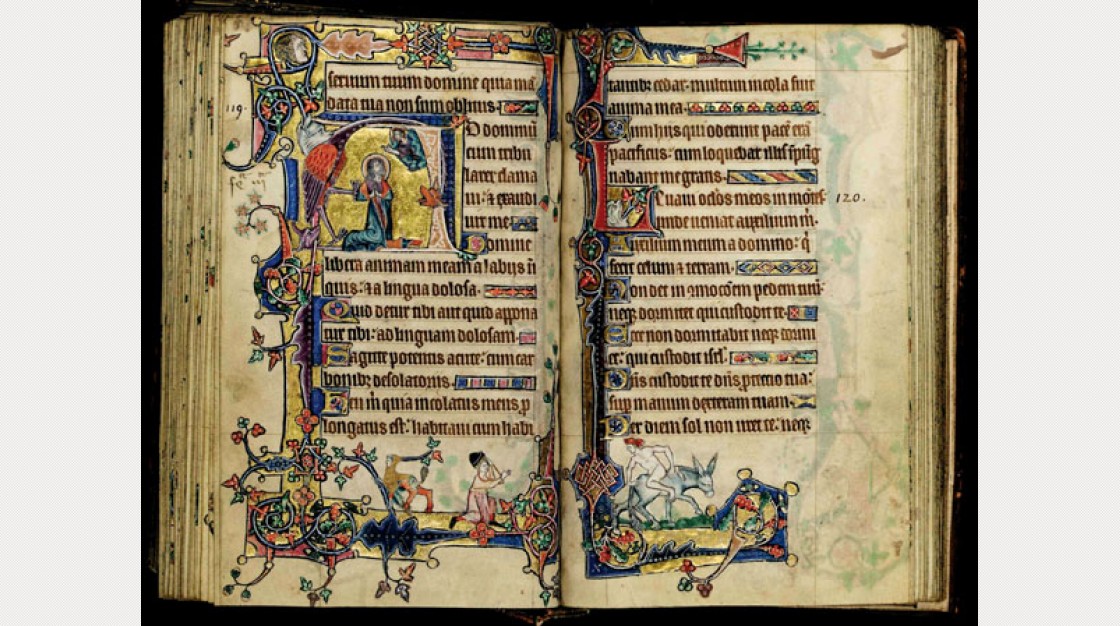 seruum tuum domine quia mā
data tua non sum oblitus.
119.
AD dominū
cum tribu
larer clama
ui: ⁊ exaudi
uit me
Domine
libera animam meam a labijs ī
quis: ⁊ a lingua dolosa.
Quid detur tibi aut quid appona
tur tibi: ad linguam dolosam.
Sagitte potentis acute: cum car
bonibꝫ desolatoriis.
Heu m̄ quia incolatus meus ꝓ
longatus est: habitaui cum habi
tantibꝫ cedar: multum incola fuit
anima mea.
Cum hiis qui oderunt pacē erā
pacificus: cum loquebar illis īpug
nabant me gratis.
Leuaui oclos meos in mōtes
120.
unde ueniat auxilium m̄.
Auxilium meum a domino: q̄
fecit celum ⁊ terram.
Non det in ꝯmocōem pedem tuū:
neqꝫ dormitet qui custodit te.
Ecce non dormitabit neqꝫ dormi
et: qui custodit isrl̄.
Dn̄s custodit te dn̄s ꝓtectio tua:
sup̄ manum dexteram tuam.
Per diem sol non uret te: neqꝫ